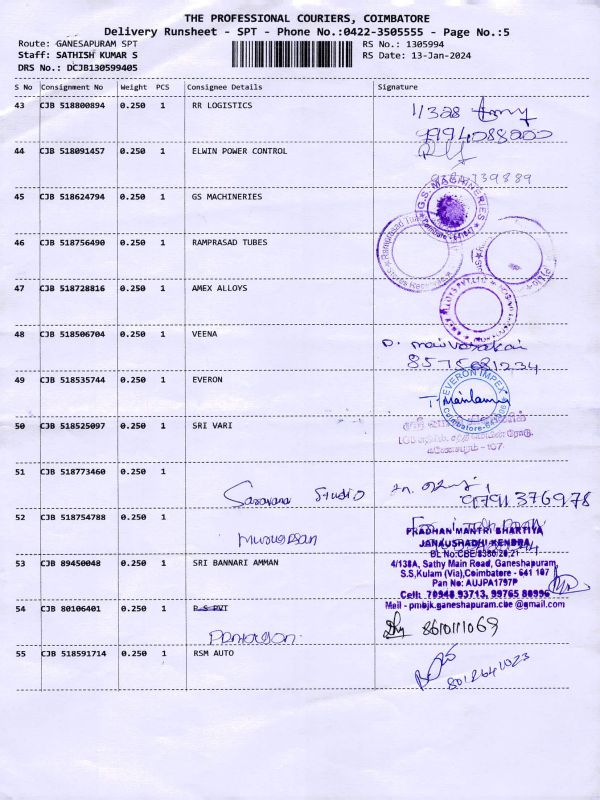 THE PROFESSIONAL COURIERS, COIMBATORE
Delivery Runsheet - SPT - Phone No.:0422-3505555 - Page No.:5
Route: GANESAPURAM SPT RS No.: 1305994
Staff: SATHISH KUMAR S RS Date: 13-Jan-2024
DRS No.: DCJB130599405
S No Consignment No Weight PCS Consignee Details Signature
43 CJB 518800894 0.250 1 RR LOGISTICS
44 CJB 518091457 0.250 1 ELWIN POWER CONTROL
45 CJB 518624794 0.250 1 GS MACHINERIES
G.S. MACHINERIES
46 CJB 518756490 0.250 1 RAMPRASAD TUBES
47 CJB 518728816 0.250 1 AMEX ALLOYS
48 CJB 518506704 0.250 1 VEENA
8575081234
49 CJB 518535744 0.250 1 EVERON
EVERON IMPEX
Coimbatore
50 CJB 518525097 0.250 1 SRI VARI
51 CJB 518773460 0.250 1
Saravana Studio
9791376978
52 CJB 518754788 0.250 1
Murugesan
PRADHAN MANTRI BHARTIYA
JANAUSHADHI KENDRA
53 CJB 89450048 0.250 1 SRI BANNARI AMMAN
4/138A, Sathy Main Road, Ganeshapuram,
S.S,Kulam (Via),Coimbatore - 641 107
Pan No: AUJPA1797P
Cell: 70948 93713, 99765 80996
Mail - pmbjk.ganeshapuram.cbe @gmail.com
54 CJB 80106401 0.250 1
8610111069
55 CJB 518591714 0.250 1 RSM AUTO
8012641023